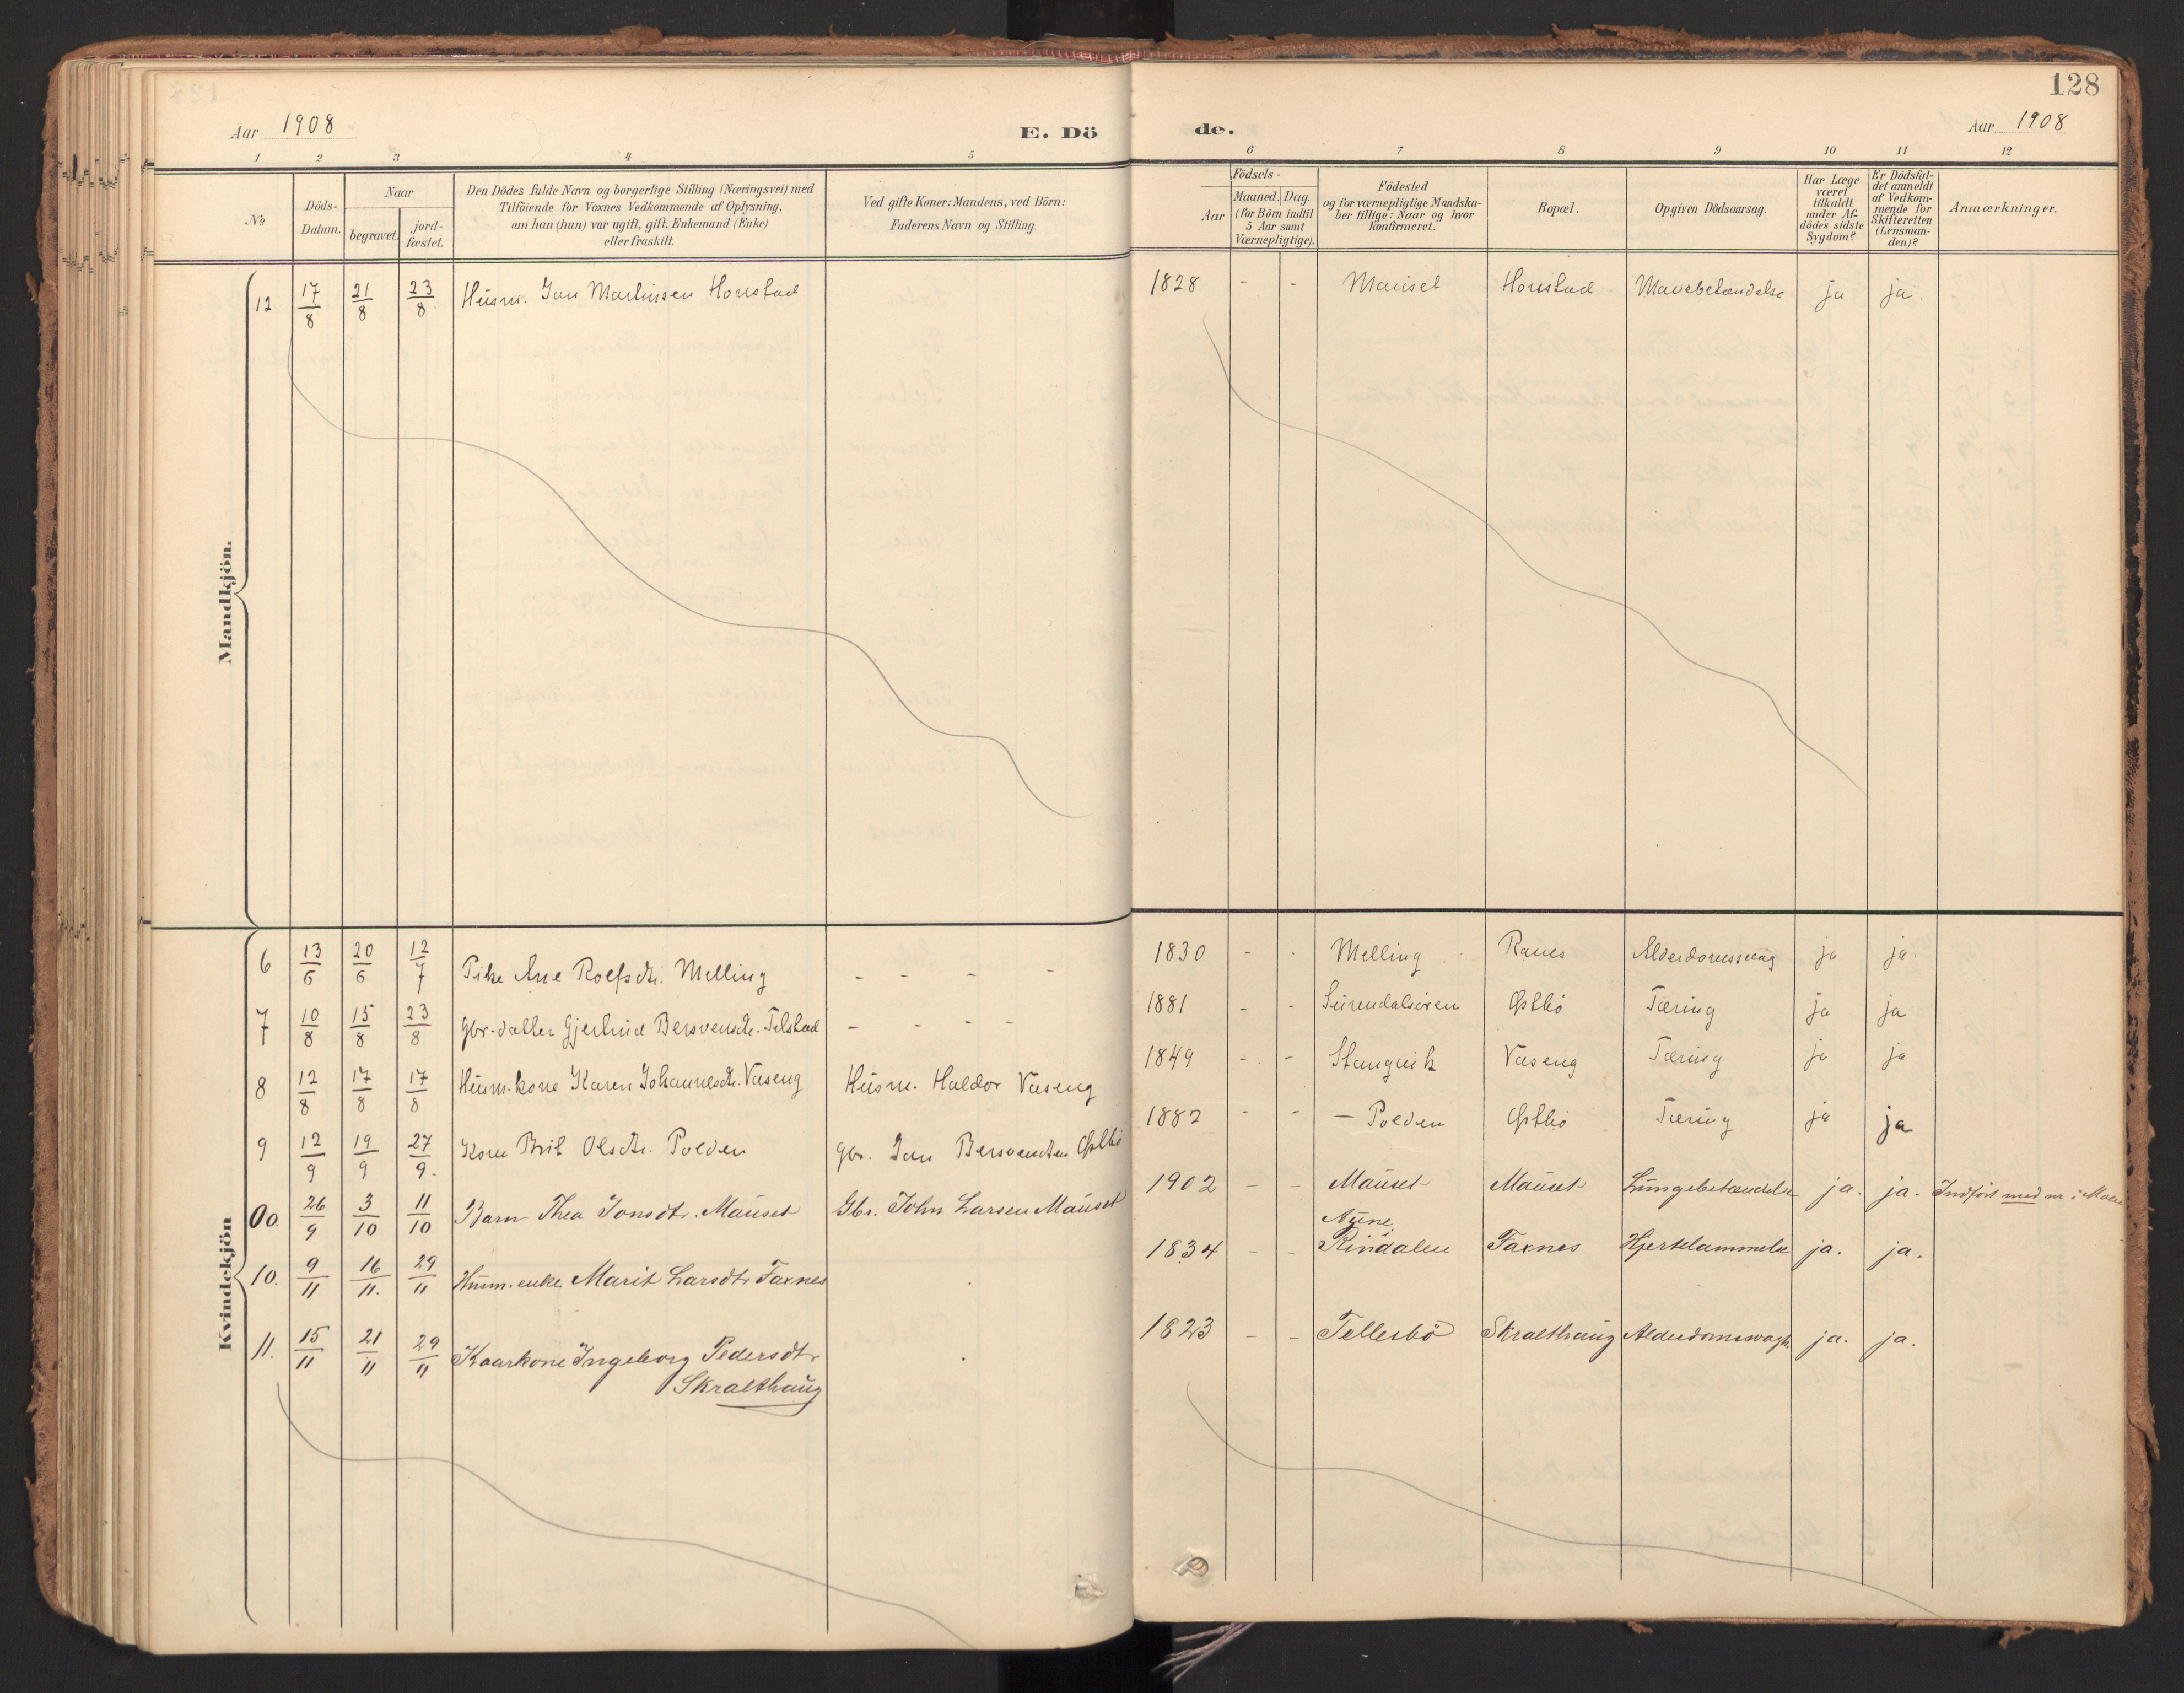 128
Aar 1908
E. Dö
de.
Aar 1908
1 2 3 4 5 6 7 8 9 10 11 12
No
Döds-
Datum.
Naar
begravet.
jord-
fæstet.
Den Dödes fulde Navn og borgerlige Stilling (Næringsvei) med
Tilföiende for Voxnes Vedkommende af Oplysning,
om han (hun) var ugift, gift, Enkemand (Enke)
eller fraskilt.
Ved gifte Koner: Mandens, ved Börn:
Faderens Navn og Stilling.
Födsels-
Aar
Maaned. Dag.
(for Börn indtil
5 Aar samt
Værnepligtige).
Födested
og for værnepligtige Mandska-
ber tillige: Naar og hvor
Konfirmeret.
Bopæl.
Opgiven Dödsaarsag.
Har Læge
været
tilkaldt
under Af-
dödes sidste
Sygdom?
Er Dödsfal-
det anmeldt
af Vedkom-
mende for
Skifteretten
(Lensman-
den)?
Anmærkninger.
Mandkjön.
12 17/8 21/8 23/8 Husm. Jon Martinsen Honstad 1828 - - Mauset Honstad Mavebetændelse ja ja.
Kvindekjön
6 13/6 20/6 12/7 Pike Ane Roefsdtr. Melling - - - - 1830 - - Melling Ranes Alderdomssvag ja ja.
7 10/8 15/8 23/8 gbr.datter Gjertrud Bersvensdtr. Telstad - - - - 1881 - - Surendalsören Østbö Tæring ja ja
8 12/8 17/8 17/8 Husm.kone Karen Johannesdtr. Vaseng Husm. Haldor Vaseng 1849 - - Stangvik Vaseng Tæring ja ja
9 12/9 19/9 27/9. Kone Brit Olsdtr. Polden gbr. Jon Bersvendsen Østbö 1882 - - - Polden Østbö Tæring ja ja
00. 26/9 3/10 11/10 Barn Thea Jonsdtr. Mauset Gbr. John Larsen Mauset 1902 - - Mauset Mauset Lungebetændelse ja. ja. Indfört med nr. i Moen
10. 9/11 16/11. 29/11 Husm.enke Marit Larsdtr Faxnes 1834 - - Rindalen Faxnes Hjertelammelse ja. ja.
11. 15/11 21/11 29/11 Kaarkone Ingeborg Pedersdtr
Skralthaug 1823 - - Tellesbö Skralthaug Alderdomssvagh. ja. ja.